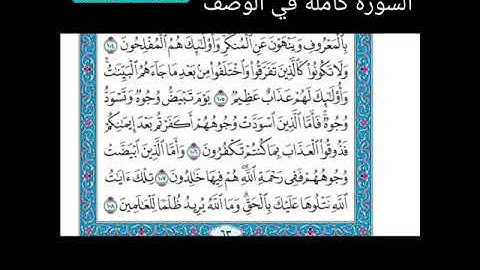 السورة كاملة في الوصف
بِالْمَعْرُوفِ وَيَنْهَوْنَ عَنِ الْمُنكَرِ وَأُوْلَٰئِكَ هُمُ الْمُفْلِحُونَ ١٠٤
وَلَا تَكُونُوا كَالَّذِينَ تَفَرَّقُوا وَاخْتَلَفُوا مِنْ بَعْدِ مَا جَاءَهُمُ الْبَيِّنَاتُ
وَأُوْلَٰئِكَ لَهُمْ عَذَابٌ عَظِيمٌ ١٠٥ يَوْمَ تَبْيَضُّ وُجُوهٌ وَتَسْوَدُّ
وُجُوهٌ فَأَمَّا الَّذِينَ اسْوَدَّتْ وُجُوهُهُمْ أَكَفَرْتُم بَعْدَ إِيمَٰنِكُمْ
فَذُوقُوا الْعَذَابَ بِمَا كُنتُمْ تَكْفُرُونَ ١٠٦ وَأَمَّا الَّذِينَ ابْيَضَّتْ
وُجُوهُهُمْ فَفِي رَحْمَةِ اللَّهِ هُمْ فِيهَا خَٰلِدُونَ ١٠٧ تِلْكَ ءَايَٰتُ
اللَّهِ نَتْلُوهَا عَلَيْكَ بِالْحَقِّ وَمَا اللَّهُ يُرِيدُ ظُلْمًا لِّلْعَٰلَمِينَ ١٠٨
٦٣